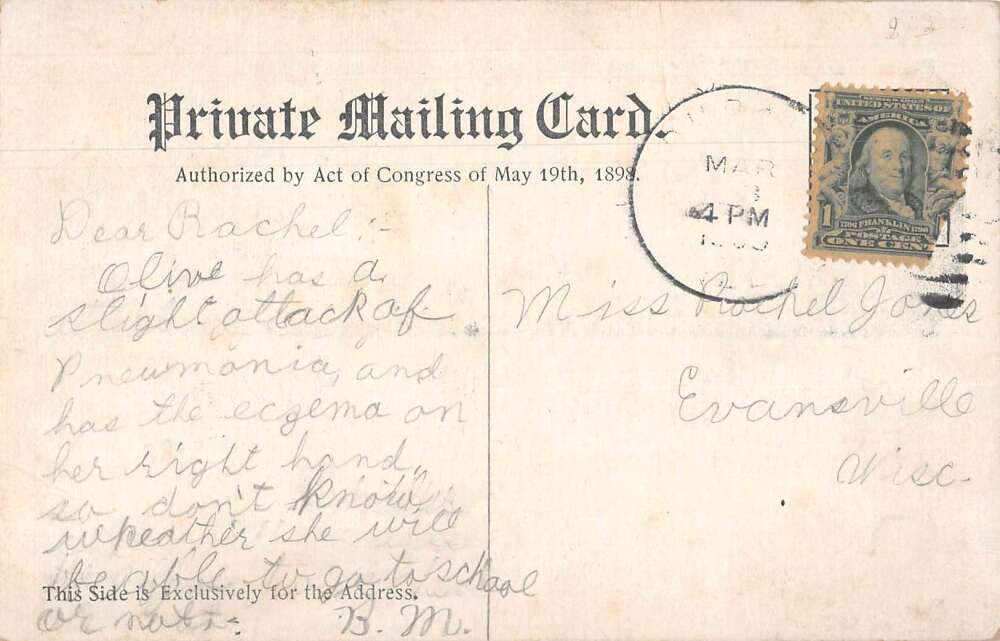 Private Mailing Card.
Authorized by Act of Congress of May 19th, 1898.
MAR
4 PM
SERIES 1902
UNITED STATES OF
AMERICA
1
1706 FRANKLIN 1790
POSTAGE
ONE CENT
Dear Rachel:-
Olive has a
slight attack of
Pneumonia, and
has the eczema on
her right hand,
so don't know
wheather she will
be able to go to school
or not.
B. M.
Miss Rachel Jones
Evansville
Wisc.
This Side is Exclusively for the Address.